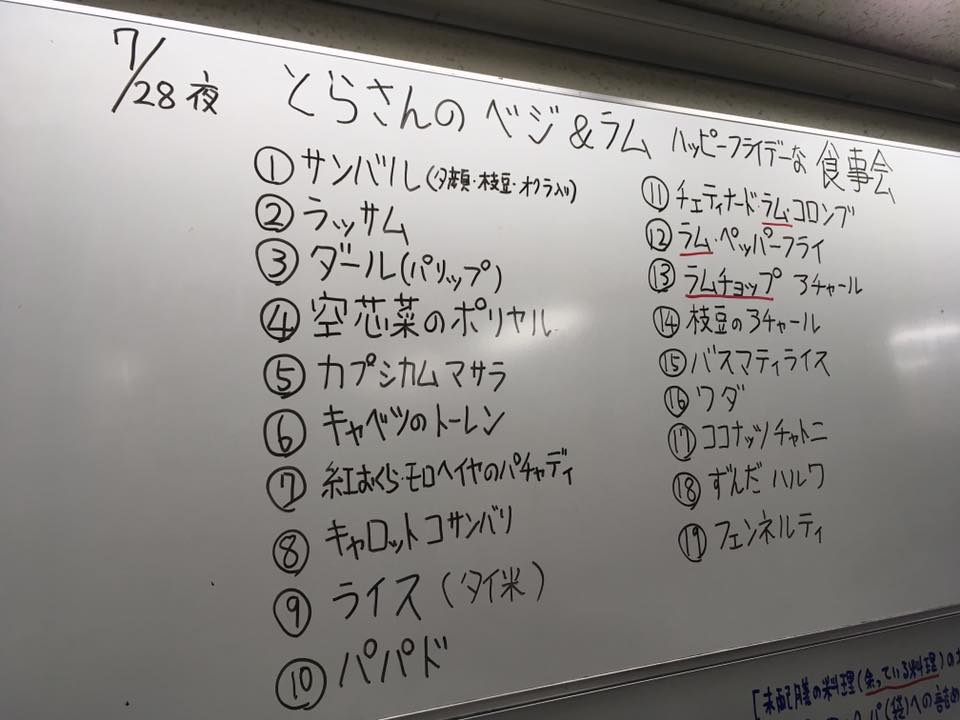 7/28夜 とらさんの ベジ&ラム ハッピーフライデーな 食事会
① サンバル(夕顔・枝豆・オクラ入り)
② ラッサム
③ ダール(パリップ)
④ 空芯菜のポリヤル
⑤ カプシカム マサラ
⑥ キャベツのトーレン
⑦ 紅おくら・モロヘイヤのパチャディ
⑧ キャロットコサンバリ
⑨ ライス(タイ米)
⑩ パパド
⑪ チェティナード・ラム・コロンブ
⑫ ラム・ペッパーフライ
⑬ ラムチョップ アチャール
⑭ 枝豆のアチャール
⑮ バスマティライス
⑯ ワダ
⑰ ココナッツチャトニ
⑱ ずんだ ハルワ
⑲ フェンネルティ
[未配膳の料理(余っている料理)の
(袋)への詰め